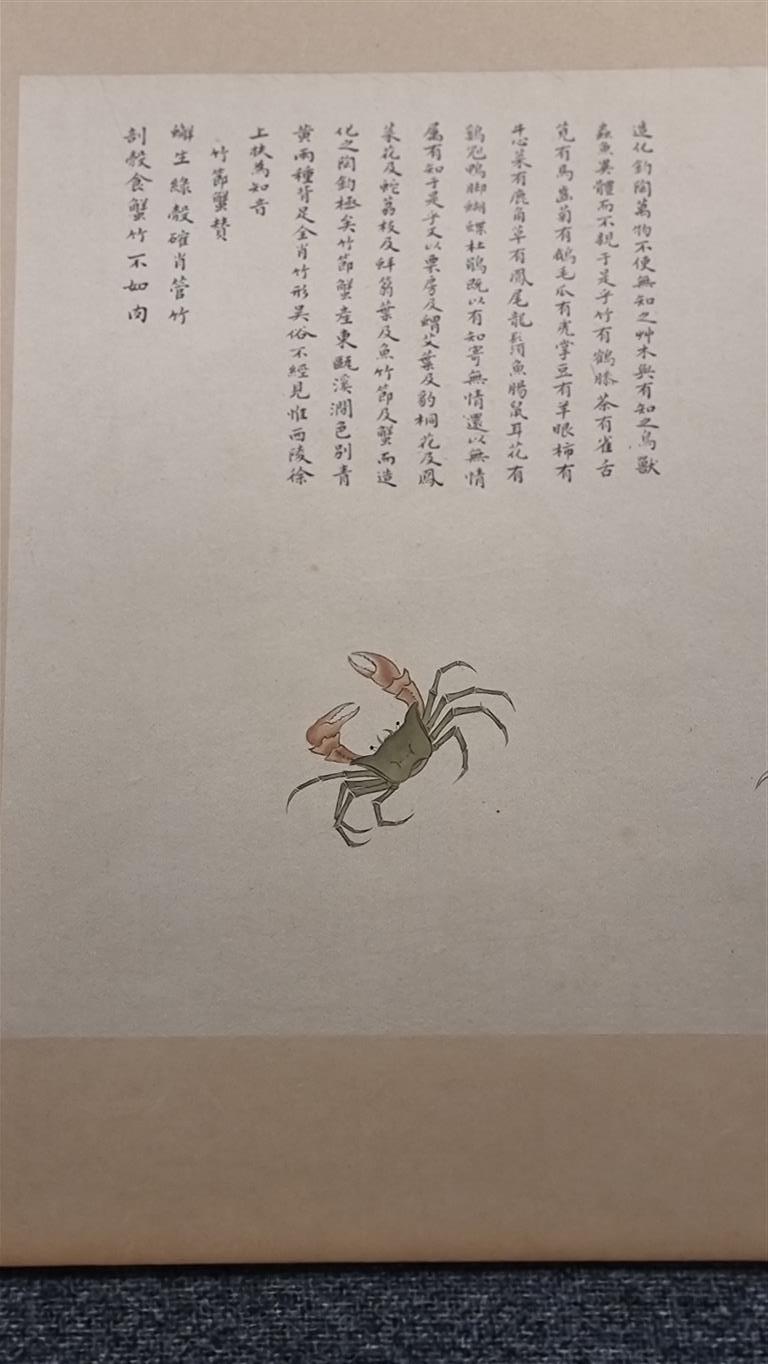 造化鈞陶萬物不使無知之艸木與有知之鳥獸
蟲魚異體而不親于是乎竹有鶴膝茶有雀舌
莧有馬齒菊有鵝毛瓜有虎掌豆有羊眼柿有
牛心菜有鹿角草有鳳尾龍鬚魚腸鼠耳花有
鷄冠鴨脚蝴蝶杜鵑既以有知寄無情還以無情
屬有知于是乎又以栗房及蝟艾葉及豹桐花及鳳
菜花及蛇荔枝及蚌箬葉及魚竹節及蟹而造
化之陶鈞極矣竹節蟹產東甌溪澗色別青
黄兩種背足全肖竹形吴俗不經見惟西陵徐
上扶為知音
竹節蟹賛
蠏生綠殼確肖管竹
剖殼食蟹竹不如肉